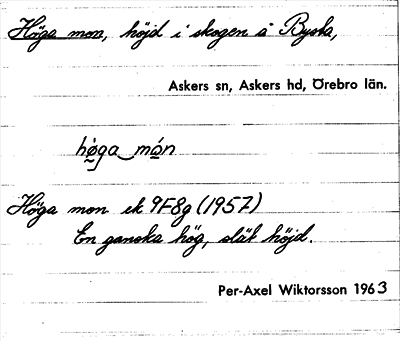 Höga mon, höjd i skogen å Bysta,
Askers sn, Askers hd, Örebro län.
hö̀ga mó̠n
Höga mon ek 9F8g (1957)
En ganska hög, slät höjd.
Per-Axel Wiktorsson 1963